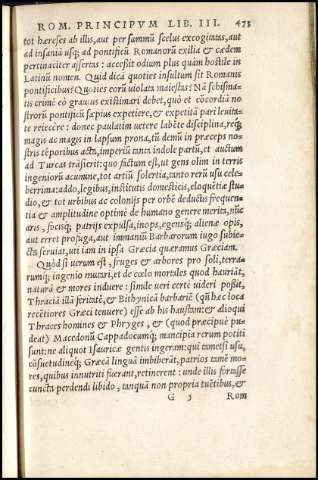 ROM. PRINCIPVM LIB. III. 473
tot hæreses ab illis, aut per summū scelus excogitatas, aut
ad insaniā usq; ad pontificū Romanorū exilia & cædem
pertinaciter assertas: accessit odium plus quàm hostile in
Latinū nomen. Quid dicā quoties insultum sit Romanis
pontificibus? Quoties eorū uiolata maiestas? Nā schisma-
tis crimē eò grauius existimari debet, quò et cōcordiā no-
strorū pontificū sæpius expetiere, & expetitā pari leuita-
te reiecêre: donec paulatim uetere labēte disciplina, req;
magis ac magis in lapsum prona, tū demū in præceps no-
stris tēporibus acta, imperiū tanta indole partū, et auctum
ad Turcas trāsierit: quo factum est, ut gens olim in terris
ingeniorū acumine, tot artiū solertia, tanto rerū usu cele-
berrima: addo, legibus, institutis domesticis, eloquētiæ stu-
dio, & tot urbibus ac colonijs per orbē deductis frequen-
tia & amplitudine optimè de humano genere merita, nūc
aris, focisq; patrijs expulsa, inops, egensq; alienæ opis,
aut erret profuga, aut immanis Barbarorum iugo subie-
cta seruiat, uti iam in ipsa Græcia quæramus Græciam.
Quòd si uerum est, fruges & arbores pro soli, terra-
rumq; ingenio mutari, et de cælo mortales quod hauriāt,
naturā & mores induere: simile ueri certè uideri poßit,
Thraciā illā feritatē, & Bithynicā barbariē (qui hæc loca
recētiores Græci tenuere) esse ab his haustam: & alioqui
Thraces homines & Phryges, & (quod præcipuè pu-
deat) Macedonū Cappadocumq; mancipia rerum potiti
sunt: ne aliquot Isauricæ gentis ingeram: qui tametsi usu,
cōsuetudineq; Græcā lingua imbiberāt, patrios tamē mo-
res, quibus innutriti fuerant, retinerent: unde illis fortasse
cuncta perdendi libido, tanquā non propria tuētibus, &
G 5 Rom